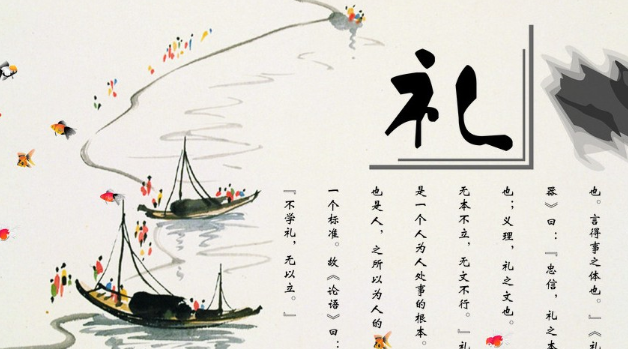 礼
也。言得事之体也。』《礼
器》曰：『忠信，礼之本
也；义理，礼之文也。
无本不立，无文不行。』礼
是一个人为人处事的根本。
也是人，之所以为人的
一个标准。故《论语》曰：
『不学礼，无以立。』